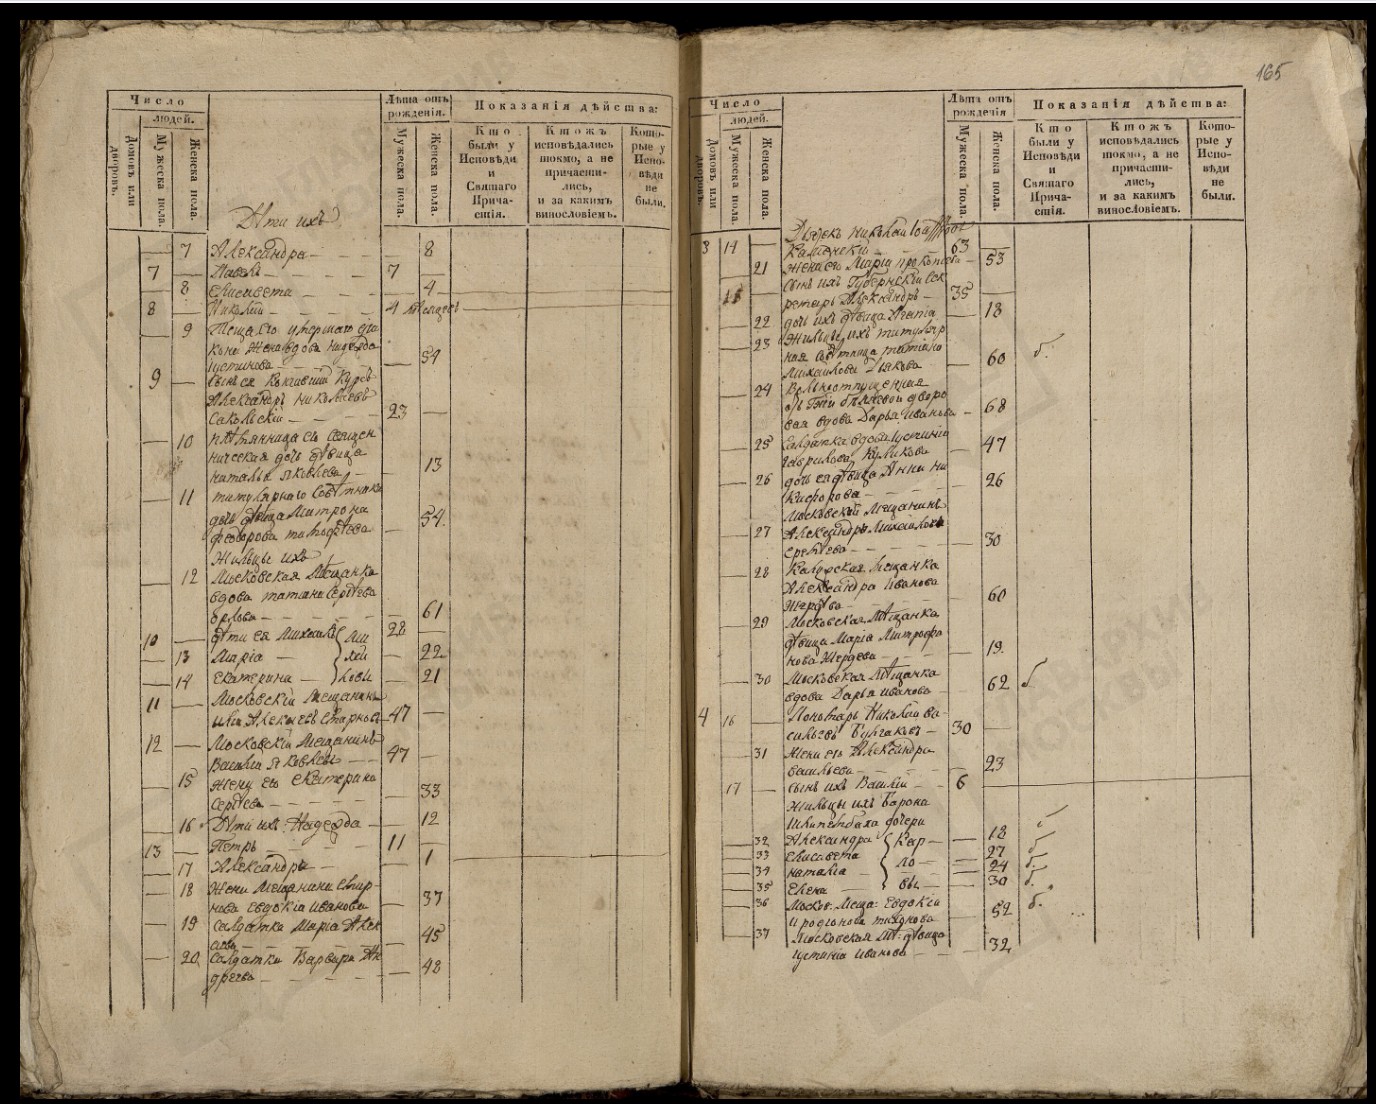 165
Число
людей.
Домовъ или дворовъ.
Мужеска пола.
Женска пола.
Лѣта отъ рожденія.
Мужеска пола.
Женска пола.
Показанія дѣйства:
Кто были у Исповѣди и Святаго Прича-стія.
Ктожъ исповѣдались токмо, а не причасти-лись, и за какимъ винословіемъ.
Кото-рые у Испо-вѣди не были.
Дѣти ихъ
7 Александра 8
7 Павелъ 7
8 Елисавета 4
8 Николай 4 месяцевъ
9 Теща его умершаго діа
кона жена вдова Надежда
Іустинова 54
9 Сынъ ея кончившій курсъ
Александръ Николаевъ
Сакольскій 23
10 Племянница его священ
ническая дочь дѣвица
Наталья Яковлева 13
11 Титулярнаго Совѣтника
дочь дѣвица Матрона
Феодорова Тимофѣева 54.
Жильцы ихъ
12 Московская Мѣщанка
вдова Татіана Сергѣева
Орлова 61
10 Дѣти ея Михаилъ 28
13 Марія 22
14 Екатерина 21
11 Московскій Мещанинъ
Алексѣевъ 47
12 Московскій Мещанинъ
Василій Яковлевъ 47
15 Жена его Екатерина
Сергѣева 33
16 Дѣти ихъ: Надежда 12
13 Петръ 11
17 Александра 1
18 Жена Мещанина Смир-
нова Евдокіа Иванова 37
19 Салдатка Маріа Алек
45
20 Салдатка Варвара Ан
дреева 48
Число
людей.
Домовъ или дворовъ.
Мужеска пола.
Женска пола.
Лѣта отъ рожденія
Мужеска пола.
Женска пола.
Показанія дѣйства:
Кто были у Исповѣди и Святаго Прича-стія.
Ктожъ исповѣдались токмо, а не причасти-лись, и за какимъ винословіемъ.
Кото-рые у Испо-вѣди не были.
3 14 Дьячекъ Николай
Каменскій 63
21 Жена его Маріа Прокопіева 53
Сынъ ихъ Губернскій Сек
15 ретарь Александръ 35
22 дочь ихъ дѣвица Агнія 18
23 Жильцы ихъ титуляр
ная совѣтница Татіана
Михайлова Дьякова 60 б.
24 Вольноотпущенная
дворо
вая вдова Дарья Иванова 68
25 Салдатка вдова Іустиніа
Гаврилова Куликова 47
26 дочь ея дѣвица Анна Ни
кифорова 26
Московской Мещанинъ
27 Александра Михайлова
Сергѣева 30
28 Калужская Мещанка
Александра Иванова
60
29 Московская Мѣщанка
дѣвица Маріа Митрофа
нова 19.
30 Московская Мѣщанка
вдова Дарья Иванова 62 б
4 16 Пономарь Николай Ва
сильевъ Булгаковъ 30
31 Жена его Александра
Васильева 23
17 Сынъ ихъ Василій 6
Жильцы ихъ Барона
дочери
32 Александра 18
33 Елисавета 27 б
34 Наталіа 24 б.
35 Елена 30 б.
36 Москов: Меща: Евдокіа
Иродіонова Тихонова 52 б.
37 Московская Мѣ: дѣвица
Іустиніа Иванова 32